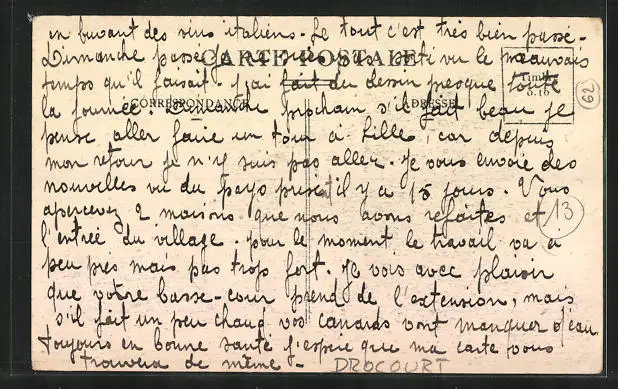 en buvant des vins italiens. Le tout c'est très bien passé.
Dimanche passé je ne suis pas sorti vu le mauvais
CARTE POSTALE
temps qu'il faisait. j'ai fait du dessin presque toute
Timbre
0.10
62
la journée. Dimanche prochain s'il fait beau je
CORRESPONDANCE
ADRESSE
pense aller faire un tour à Lille, car depuis
mon retour je n'y suis pas aller. Je vous envoie des
nouvelles vu du pays il y a 15 jours. Vous
apercevez 2 maisons que nous avons refaites et
13
l'entrée du village. pour le moment le travail va à
peu près mais pas trop fort. Je vois avec plaisir
que votre basse-cour prend de l'extension, mais
s'il fait un peu chaud vos canards vont manquer d'eau
toujours en bonne santé j'espère que ma carte vous
trouvera de même.
DROCOURT